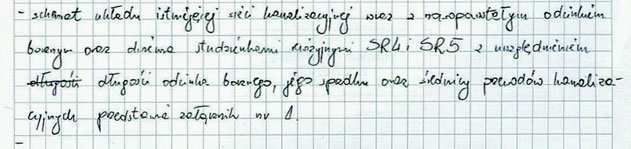 - schemat układu istniejącej sieci kanalizacyjnej wraz z nowopowstałym odcinkiem
bocznym oraz dwiema studzienkami rewizyjnymi SR4 i SR5 z uwzględnieniem
długości odcinka bocznego, jego spadku oraz średnicy przewodów kanaliza-
cyjnych przedstawia załącznik nr 1.
-